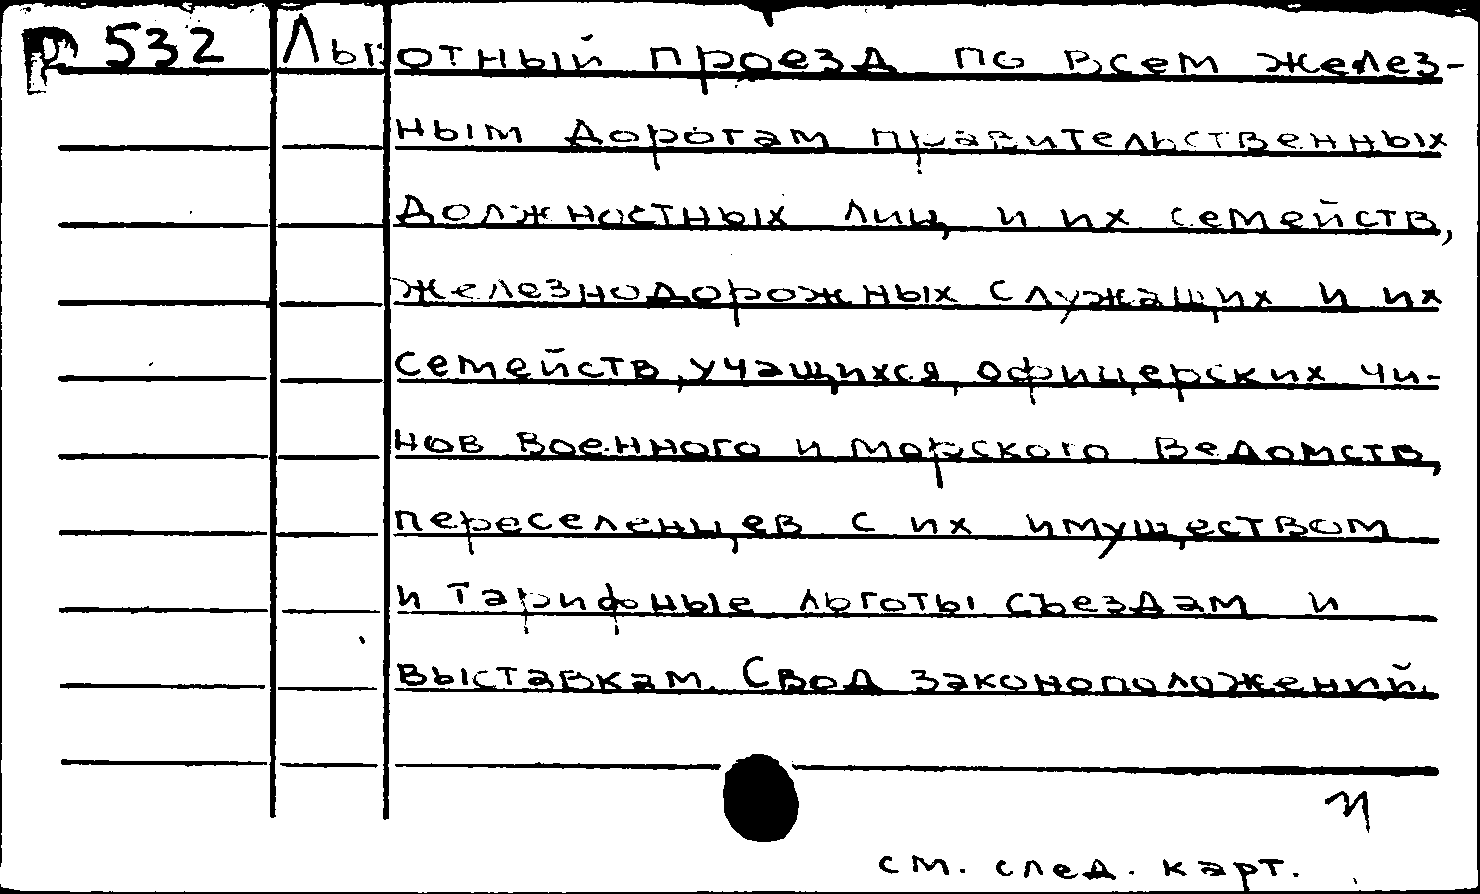 Р 532 Льготный проезд по всем желез-
ным дорогам правительственных
должностных лиц и их семейств,
железнодорожных служащих и их
семейств, учащихся, офицерских чи-
нов военного и морского ведомств,
переселенцев с их имуществом
и тарифные льготы съездам и
выставкам. Свод законоположений.
см. след. карт.